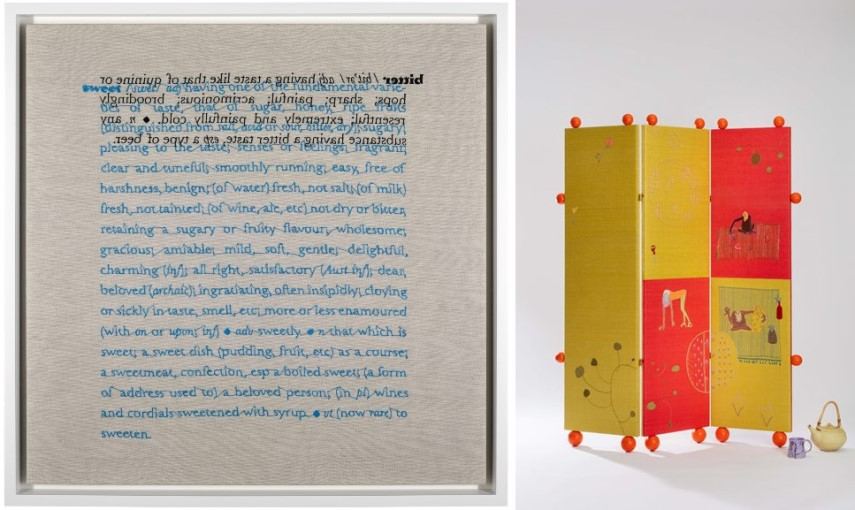 bitter /bit'ər/ adj having a taste like that of quinine or
sweet /swēt/ adj having one of the fundamental varie-
hops; sharp; painful; acrimonious; broodingly
ties of taste, that of sugar, honey, ripe fruits
resentful; extremely and painfully cold. ◆ n any
(distinguished from salt, acid or sour, bitter, dry); sugary;
substance having a bitter taste, esp a type of beer.
pleasing to the taste; senses or feelings; fragrant;
clear and tuneful; smoothly running; easy, free of
harshness, benign; (of water) fresh, not salt; (of milk)
fresh, not tainted; (of wine, ale, etc) not dry or bitter,
retaining a sugary or fruity flavour; wholesome;
gracious; amiable; mild, soft, gentle; delightful,
charming (inf); all right, satisfactory (Aust inf); dear,
beloved (archaic); ingratiating, often insipidly; cloying
or sickly in taste, smell, etc; more or less enamoured
(with on or upon; inf) ◆ adv sweetly. ◆ n that which is
sweet; a sweet dish (pudding, fruit, etc) as a course;
a sweetmeat, confection, esp a boiled sweet; (a form
of address used to) a beloved person; (in pl) wines
and cordials sweetened with syrup. ◆ vt (now rare) to
sweeten.